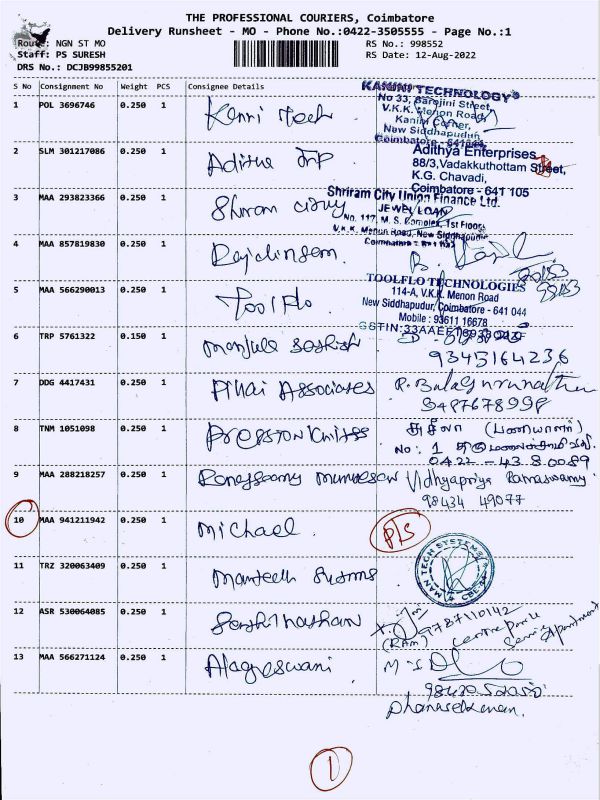 THE PROFESSIONAL COURIERS, Coimbatore
Delivery Runsheet - MO - Phone No.:0422-3505555 - Page No.:1
Route: NGN ST MO
RS No.: 998552
Staff: PS SURESH
RS Date: 12-Aug-2022
DRS No.: DCJB99855201
S No Consignment No Weight PCS Consignee Details
1 POL 3696746 0.250 1 Kanni Tech
KANINI TECHNOLOGY
No 33, Sarojini Street,
V.K.K. Menon Road,
Kanini Corner,
New Siddhapudur,
Coimbatore - 641044
2 SLM 301217086 0.250 1 Aditha
Adithya Enterprises
88/3, Vadakkuthottam Street,
K.G. Chavadi,
Coimbatore - 641 105
3 MAA 293823366 0.250 1 Shriram City
Shriram City Union Finance Ltd.
JEWEL LOAN
No. 117, M. S. Complex, 1st Floor,
V.K.K. Menon Road, New Siddhapudur
4 MAA 857819830 0.250 1
5 MAA 566290013 0.250 1 ToolFlo
TOOLFLO TECHNOLOGIES
114-A, V.K.K. Menon Road
New Siddhapudur, Coimbatore - 641 044
Mobile : 93611 16678
6 TRP 5761322 0.150 1 Manjula Sathish
9345164236
7 DDG 4417431 0.250 1 Pillai Associates
9487678998
8 TNM 1051098 0.250 1 Presston Knitss
சுசீலா
No: 1
0422 - 43 80089
9 MAA 288218257 0.250 1
Vidhyapriya Ramaswamy
98434 49077
10 MAA 941211942 0.250 1 Michael
P/S
11 TRZ 320063409 0.250 1 Mantech Systems
MAN TECH SYSTEMS
CBE-44
12 ASR 530064085 0.250 1 Senthilnathan
(RAM)
9787110142
Centre Park
13 MAA 566271124 0.250 1 Alagreswani
Dhanasekaran.
1